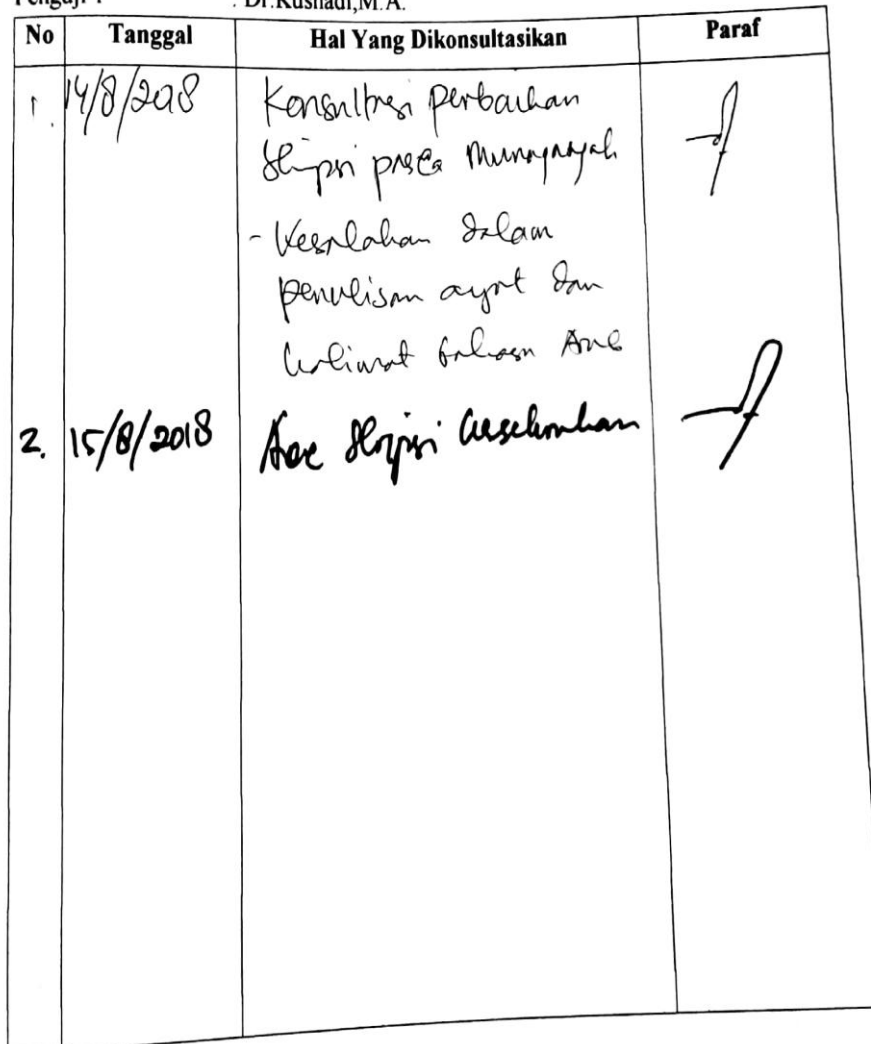 : Dr.Kusnadi,M.A.
No Tanggal Hal Yang Dikonsultasikan Paraf
1. 14/8/2018 Konsultasi perbaikan
Skripsi pasca Munaqasyah
- Kesalahan dalam
penulisan ayat dan
kalimat bahasa Arab
2. 15/8/2018 Acc Skripsi keseluruhan